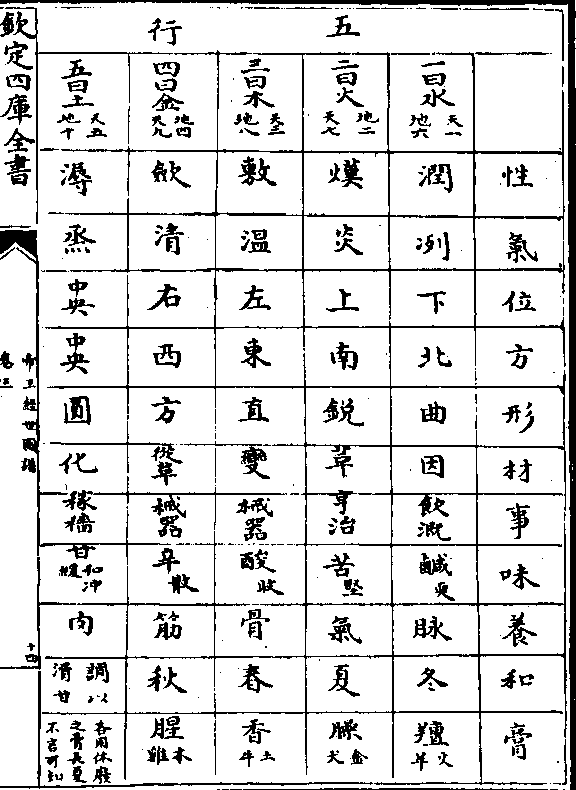 五行
一曰水 天一 地六
二曰火 地二 天七
三曰木 天三 地八
四曰金 地四 天九
五曰土 天五 地十
性 潤 熯 敷 斂 溽
氣 冽 炎 溫 清 蒸
位 下 上 左 右 中央
方 北 南 東 西 中央
形 曲 銳 直 方 圓
材 因 革 變 從革 化
事 飲溉 亨冶 械器 械器 稼穡
味 鹹耎 苦堅 酸收 辛散 甘和沖緩
養 脉 氣 骨 筋 肉
和 冬 夏 春 秋 調以滑甘
膏 羶 羊火 臊 犬金 香 牛土 腥 雞木 各用休廢之膏長夏不言可知
欽定四庫全書
帝王經世圖譜
卷三
十四